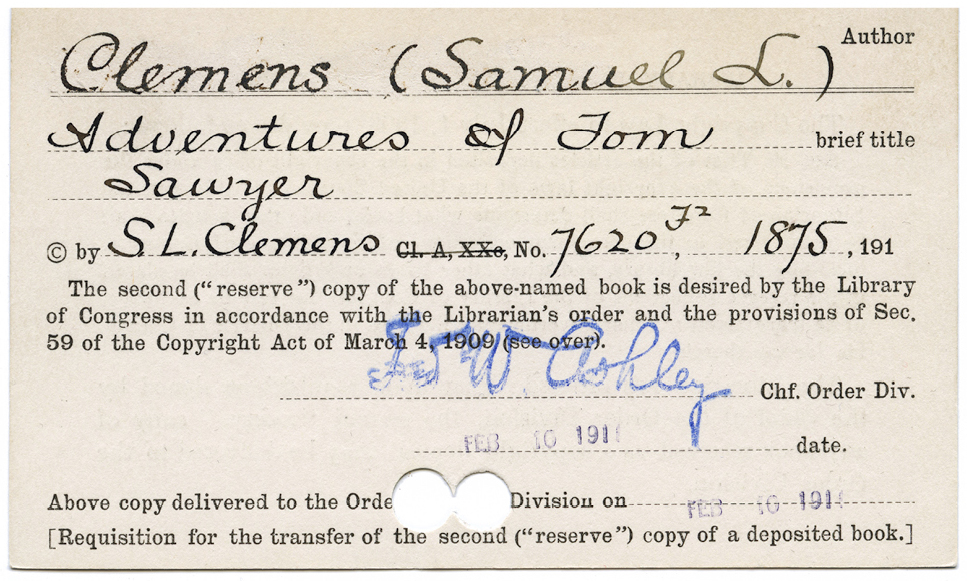 Author
Clemens (Samuel L.)
Adventures of Tom brief title
Sawyer
© by S. L. Clemens Cl. A, XXc, No. 7620 F2, 1875, 191
The second (“reserve”) copy of the above-named book is desired by the Library
of Congress in accordance with the Librarian’s order and the provisions of Sec.
59 of the Copyright Act of March 4, 1909 (see over).
Fred W. Ashley Chf. Order Div.
FEB 10 191 date.
Above copy delivered to the Orde Division on FEB 10 191
[Requisition for the transfer of the second (“reserve”) copy of a deposited book.]